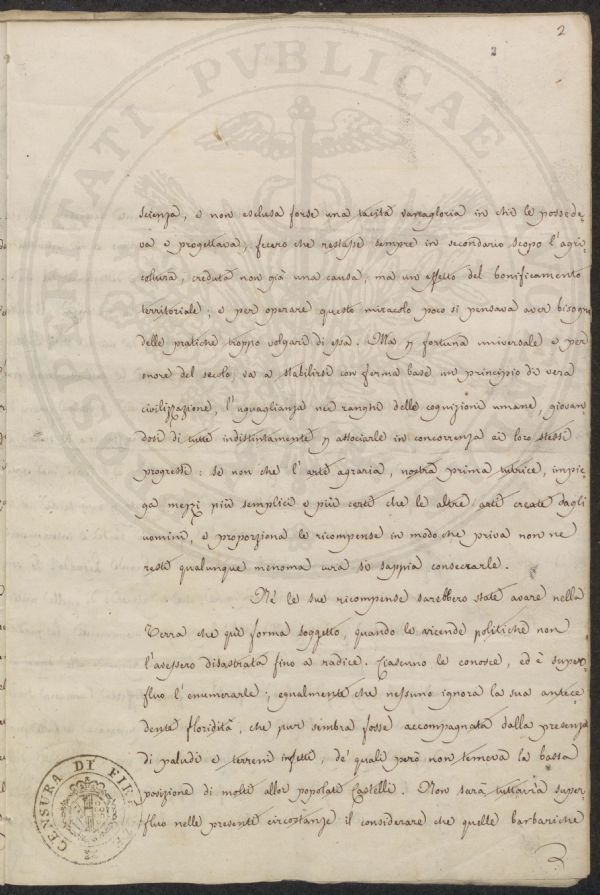 2
2
scienza, e non esclusa forse una tacita vanagloria in chi le possede,,
va e progettava, fecero che restasse sempre in secondario scopo l'agri,,
coltura, creduta non già una causa, ma un effetto del bonificamento
territoriale; e per operare questo miracolo poco si pensava aver bisogno
delle pratiche troppo volgari di essa. Ma p fortuna universale e per
onore del secolo, va a stabilirsi con ferma base un principio di vera
civilizzazione, l'uguaglianza nei ranghi delle cognizioni umane, giovan,,
dosi di tutte indistintamente p associarle in concorrenza ai loro stessi
progressi: se non che l'arte agraria, nostra prima nutrice, impie,,
ga mezzi più semplici e più certi che le altre arti create dagli
uomini, e proporziona le ricompense in modo che priva non ne
resti qualunque menoma cura si sappia consecrarle.
Nè le sue ricompense sarebbero state avare nella
Terra che quì forma soggetto, quando le vicende politiche non
l'avessero disastrata fino a radice. Ciascuno le conosce, ed è super,,
fluo l'enumerarle; egualmente che nessuno ignora la sua antece,,
dente floridità, che pur sembra fosse accompagnata dalla presenza
di paludi e terreni infetti, de' quali però non temeva la bassa
posizione di molti allor popolati Castelli. Non sarà tuttavia super,,
fluo nelle presenti circostanze il considerare che quelle barbariche
CENSURA DI FIRENZE
OSPITALITATI PVBLICAE